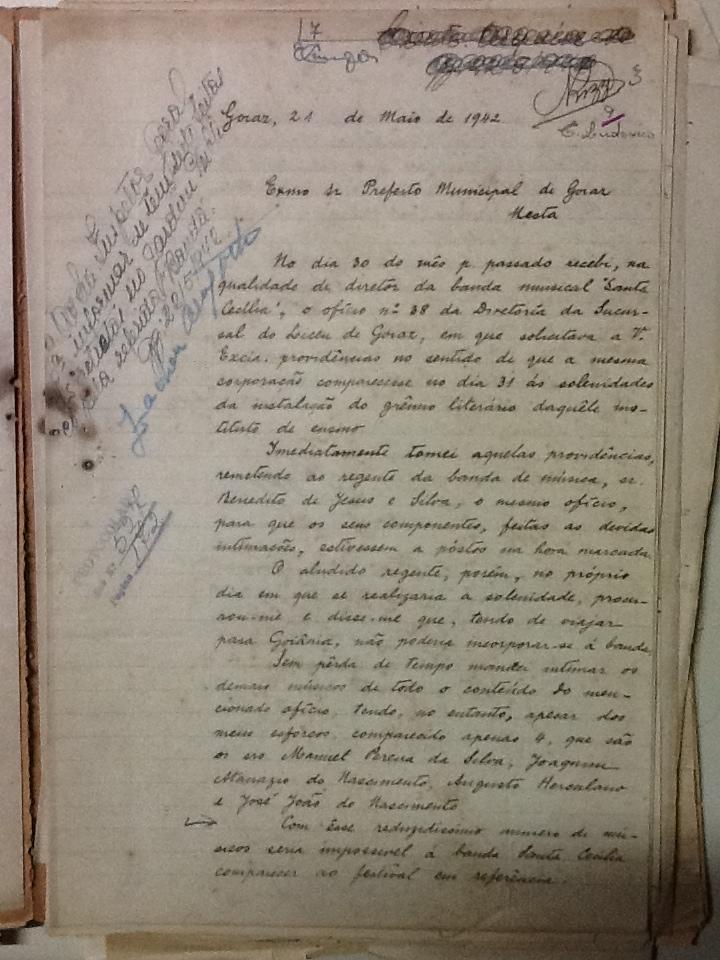 17
3
9
Goiaz, 21 de Maio de 1942
E. Ludovico
Exmo sr Prefeito Municipal de Goiaz
Nesta
No dia 30 do mês p. passado recebi, na
qualidade de diretor da banda musical "Santa
Cecília", o ofício nº 38 da Diretoria da Sucur-
sal do Liceu de Goiaz, em que solicitava a V.
Excia. providências no sentido de que a mesma
corporação comparecesse no dia 31 ás solenidades
da instalação do grêmio literário daquêle ins-
tituto de ensino
Imediatamente tomei aquelas providências,
remetendo ao regente da banda de música, sr.
Benedito de Jesus e Silva, o mesmo ofício,
para que os seus componentes, feitas as devidas
intimações, estivessem a póstos na hora marcada.
O aludido regente, porém, no próprio
dia em que se realizaria a solenidade, procu-
rou-me e disse-me que, tendo de viajar
para Goiânia, não poderia incorporar-se á banda.
Sem pérda de tempo mandei intimar os
demais músicos de todo o conteúdo do men-
cionado ofício, tendo, no entanto, apesar dos
meus esforços, comparecido apenas 4, que são
os srs Manuel Pereira da Silva, Joaquim
Atanazio do Nascimento, Augusto Herculano
e José João do Nascimento
Com êsse reduzidíssimo número de mú-
sicos seria impossível á banda Santa Cecília
comparecer ao festival em referência.
Inspetor
informar
Jardim
banda.